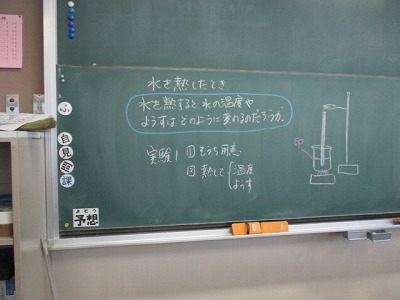 水を熱したとき
水を熱すると水の温度や
ようすはどのように変わるのだろうか。
実験1 ①そうち用意
②熱して 温度
ようす
ふ
自
見
課
よそう
予想